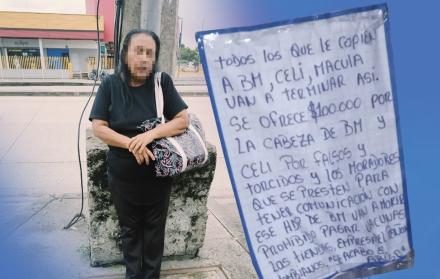 TODOS LOS QUE LE COPIEN
A BM, CELI, MACUIA
VAN A TERMINAR ASI.
SE OFRECE $100.000 POR
LA CABEZA DE BM Y
CELI POR FALSOS Y
TORCIDOS Y LOS MORADORES
QUE SE PRESTEN PARA
TENER COMUNICACION CON
ESE HDP DE BM VAN A MORIR
PROHIBIDO PAGAR VACUNAS
LOS TIENDAS, EMPRESA